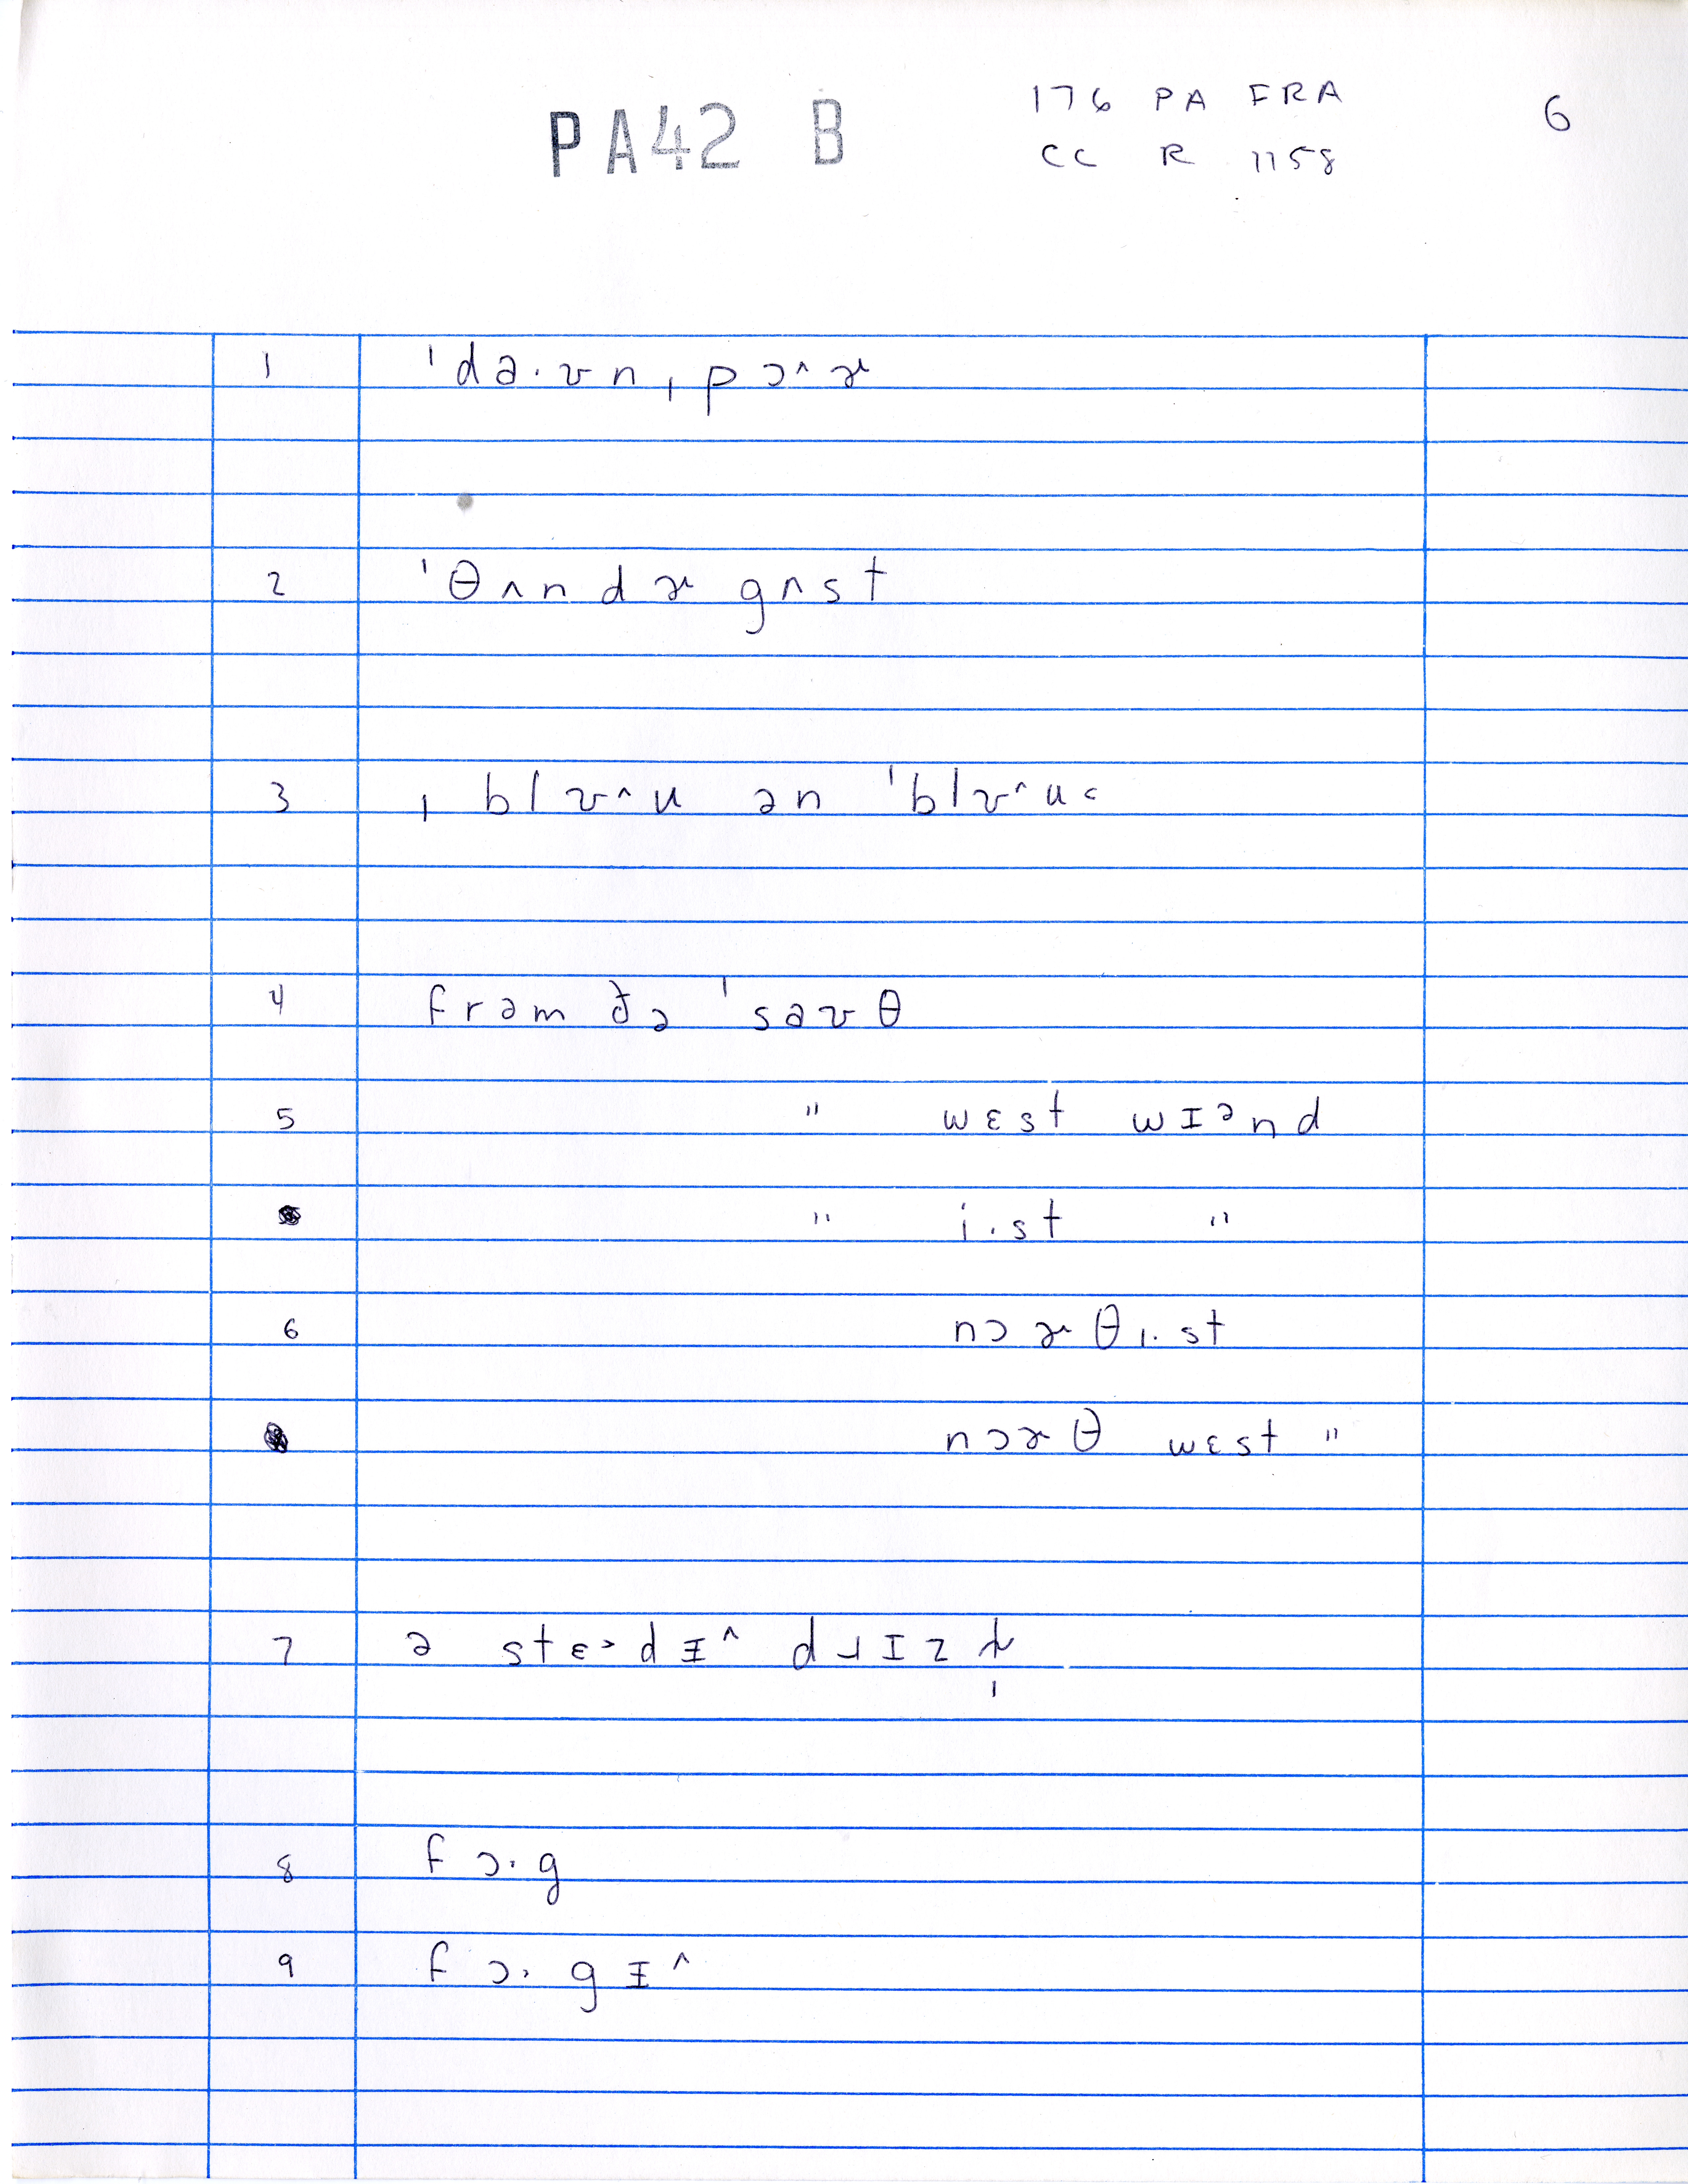 PA42 B
176 PA FRA
CC R 1158
6
1 ˈdə·ʊnˌpɔ^ɚ
2 ˈθʌndɚgʌst
3 ˌblʊ^u ən ˈblʊ^u<
4 frəm ðə ˈsəʊθ
5 " wɛst wɪənd
" i·st "
6 nɔɚθi·st
nɔɚθ wɛst "
7 ə stɛ>dɪ^ dɹɪz
8 fɔ·g
9 fɔ·gɪ^